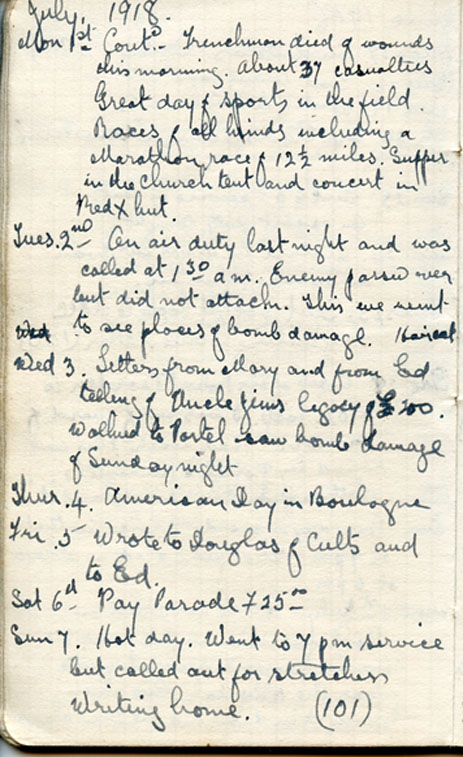 July, 1918.
Mon 1st Contd - Frenchman died of wounds
this morning. About 37 casualties
Great day of sports in the field.
Races of all kinds including a
Marathon race of 12½ miles. Supper
in the church tent and concert in
Red X hut.
Tues. 2nd On air duty last night and was
called at 1 30 a.m. Enemy passed over
but did not attack. This eve went
to see places of bomb damage. Haircut
Wed 3. Letters from Mary and from Ed
telling of Uncle Jims legacy of £200.
Walked to Portel saw bomb damage
of Sunday night
Thur. 4. American Day in Boulogne
Fri. 5 Wrote to Douglas of Cults and
to Ed.
Sat 6th Pay Parade F 25
Sun 7. Hot day. Went to 7 pm service
but called out for stretchers
Writing home. (101)